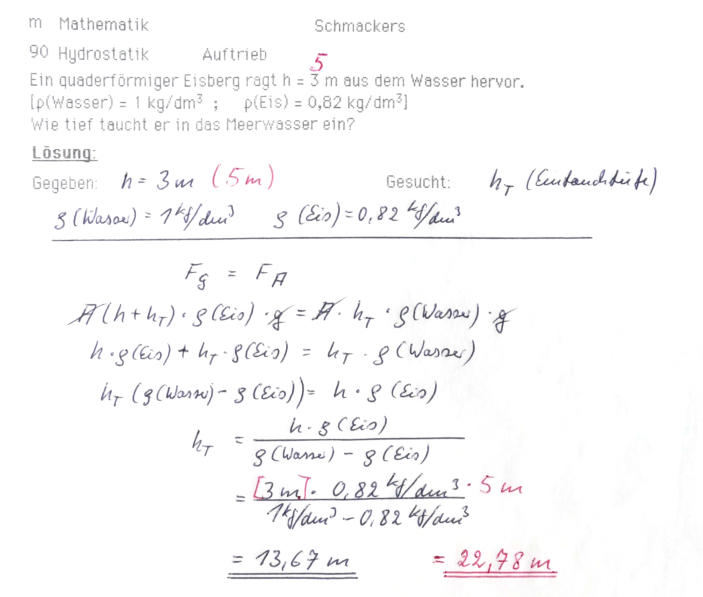 m Mathematik Schmackers
90 Hydrostatik Auftrieb
5
Ein quaderförmiger Eisberg ragt h = 3 m aus dem Wasser hervor.
[ρ(Wasser) = 1 kg/dm³ ; ρ(Eis) = 0,82 kg/dm³]
Wie tief taucht er in das Meerwasser ein?
Lösung:
Gegeben: h = 3 m (5 m) Gesucht: h_T (Eintauchtiefe)
ρ(Wasser) = 1 kg/dm³ ρ(Eis) = 0,82 kg/dm³
F_g = F_A
A(h + h_T) · ρ(Eis) · g = A · h_T · ρ(Wasser) · g
h · ρ(Eis) + h_T · ρ(Eis) = h_T · ρ(Wasser)
h_T (ρ(Wasser) - ρ(Eis)) = h · ρ(Eis)
h_T = h · ρ(Eis)
ρ(Wasser) - ρ(Eis)
= [3 m] · 0,82 kg/dm³ · 5 m
1 kg/dm³ - 0,82 kg/dm³
= 13,67 m = 22,78 m